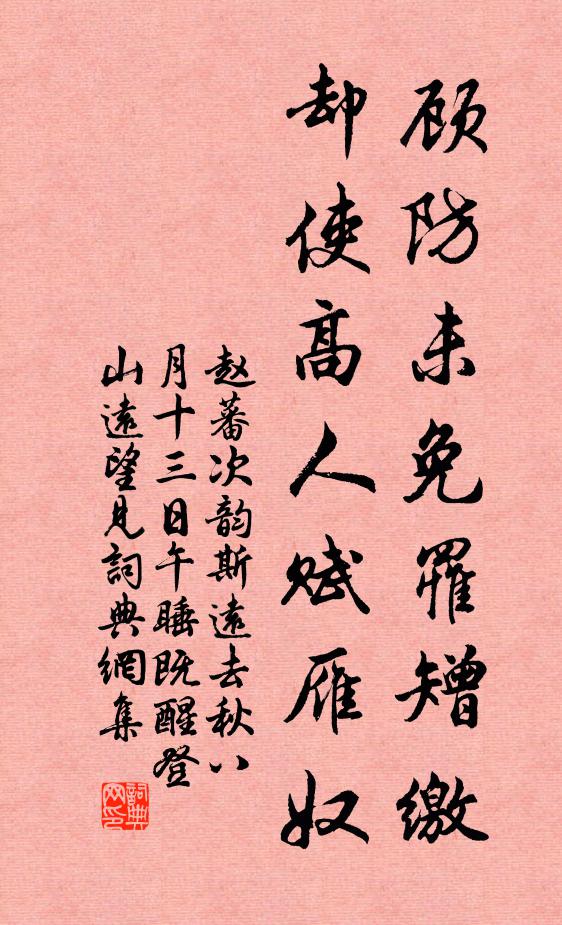 顾防未免罹矰缴
却使高人赋雁奴
赵蕃次韵斯遠去秋八
月十三日午睡既醒登
山遠望見詞典網集
詞典网印